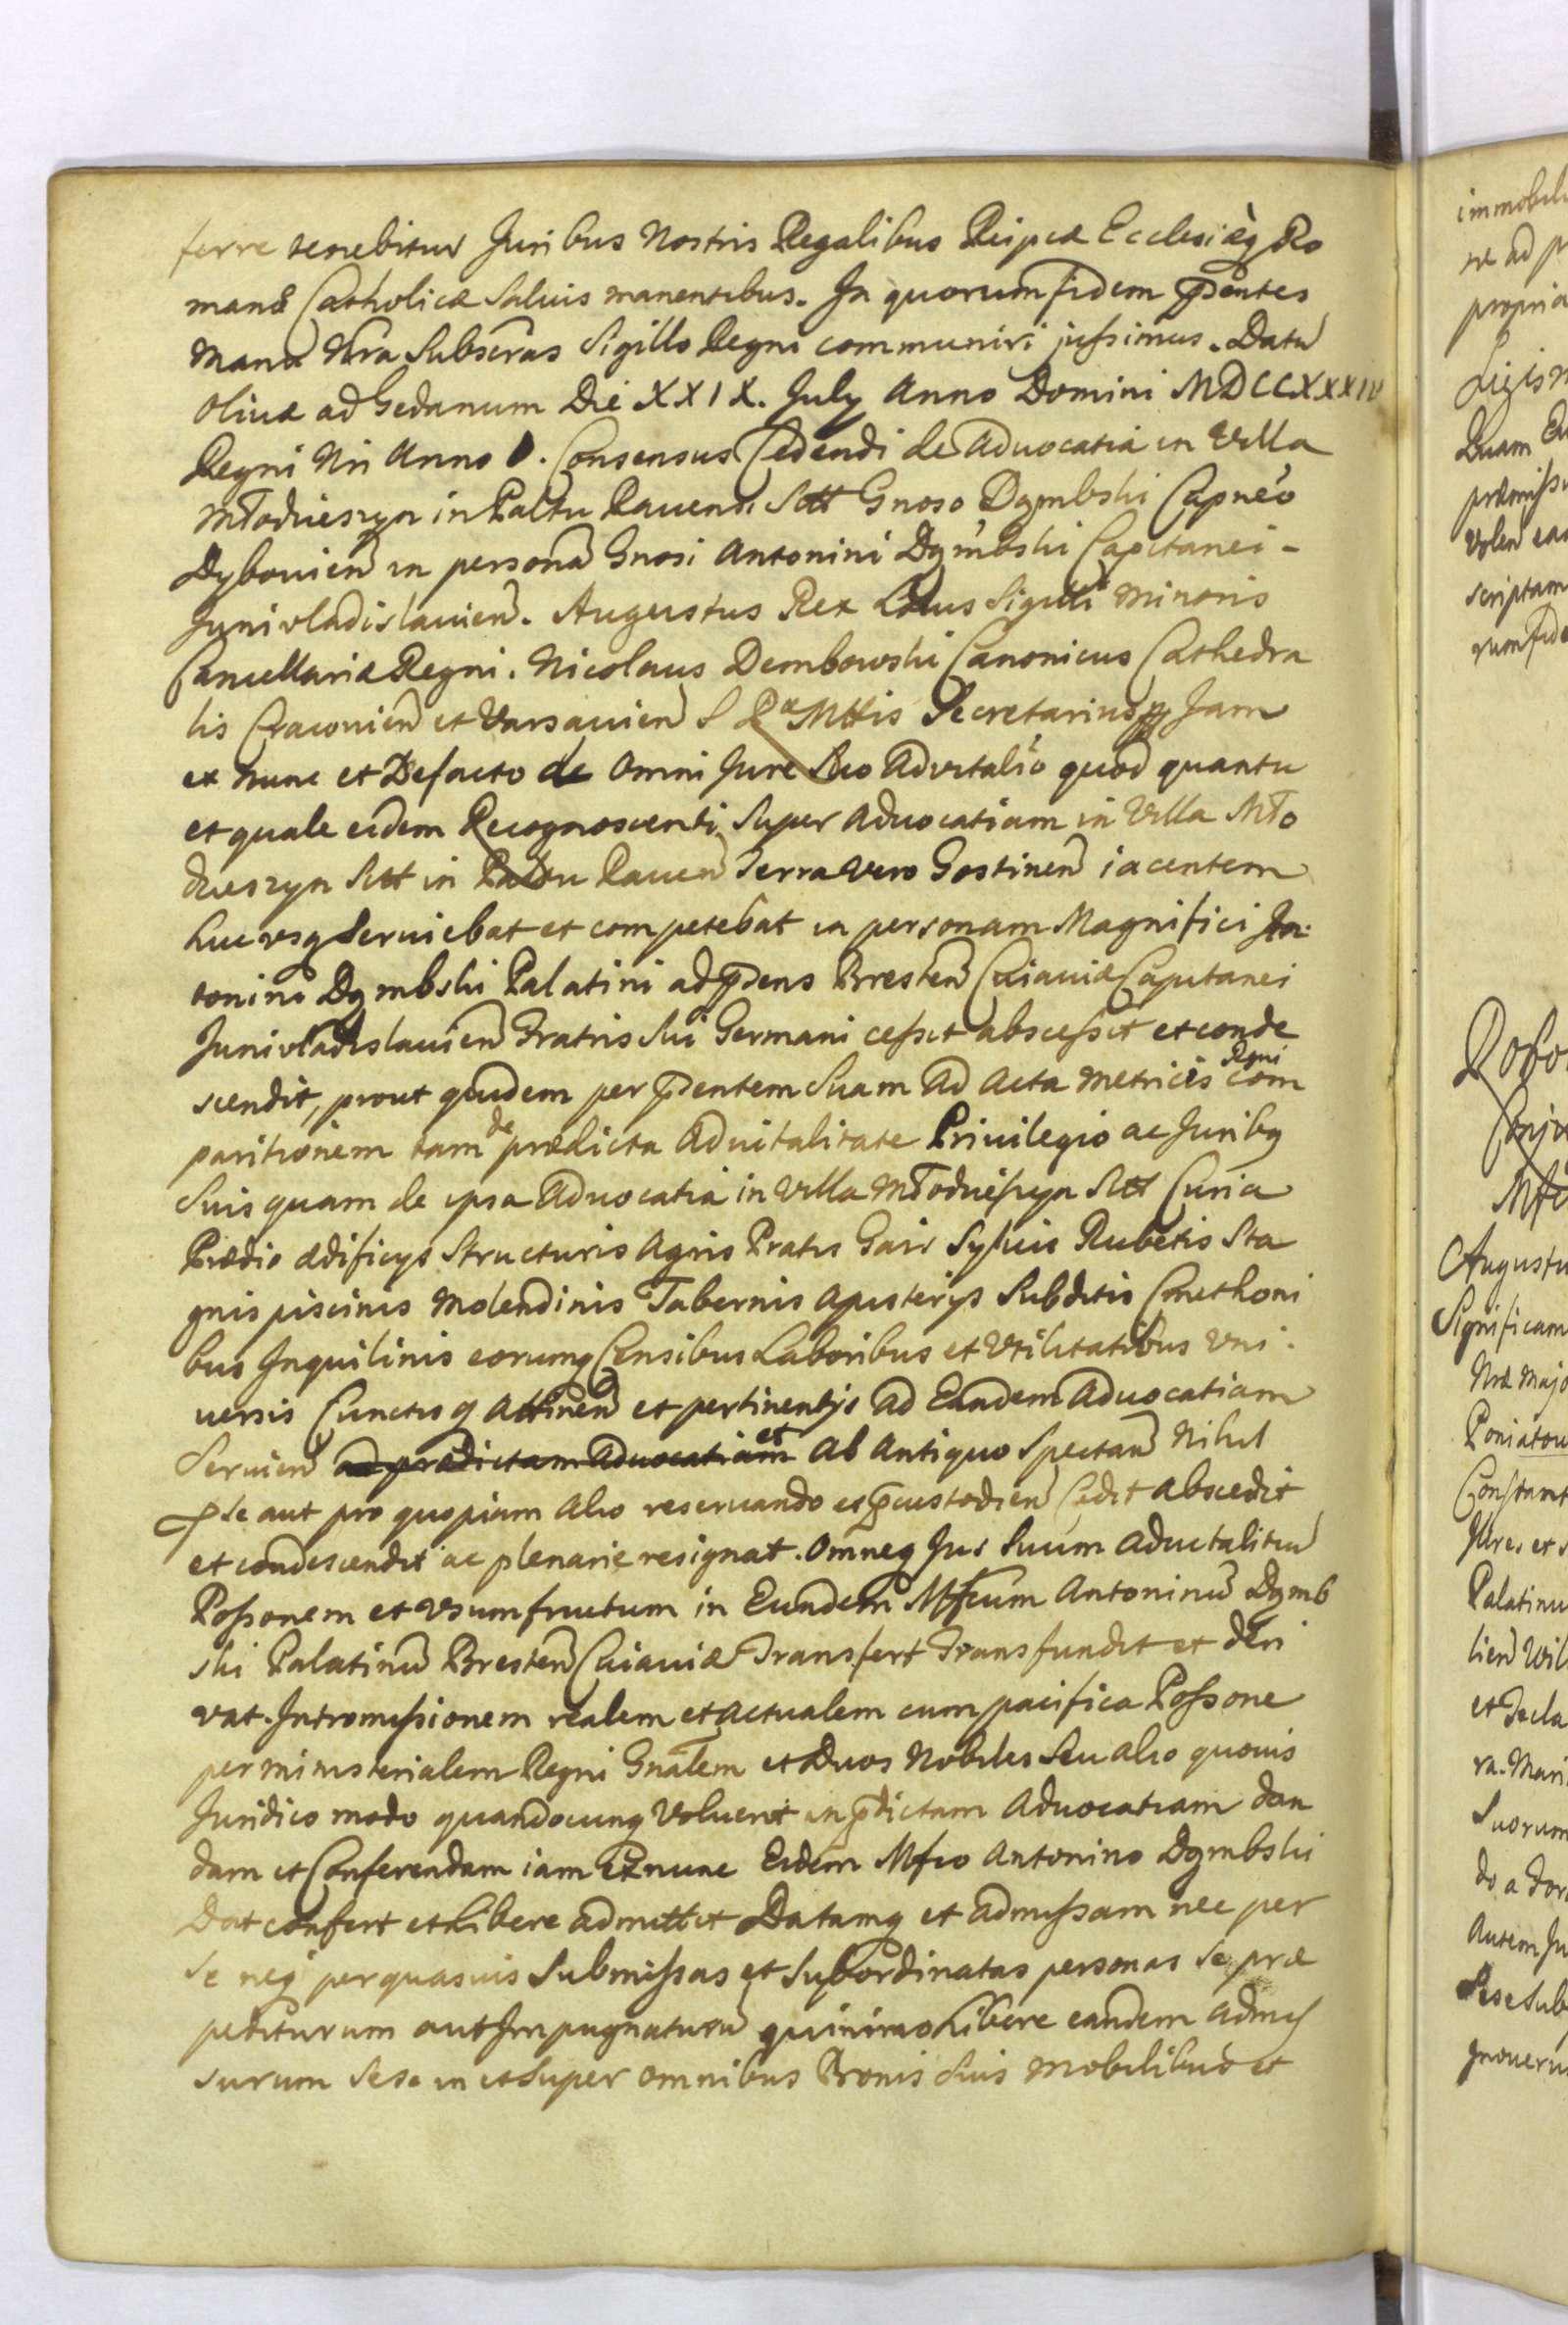 ferre tenebitur Juribus Nostris Regalibus Reipcæ Ecclesiæq Ro
manæ Catholicæ Salvis manentibus. In quorum fidem pñtes
manu Nra Subscras Sigillo Regni communiri jussimus. Datũ
Olivæ ad Gedanum Die XXIX. July Anno Domini MDCCXXXIV
Regni Nri Anno I. Consensus Cedendi de Advocatia in Villa
Młodzieszyn in Paltu Ravensi Sttt Gnoso Dąmbski Capneo
Dyboviens in persona Gnosi Antonini Dąmbski Capitanei -
Junivladislaviens. Augustus Rex Locus Sigilli Minoris
Cancellariæ Regni. Nicolaus Dembowski Canonicus Cathedra
lis Cracovien et Varsavien S Ræ Mttis Secretarius Jam
ex nunc et Defacto de Omni Jure Suo Advitalio quod quantũ
et quale eidem Recognoscenti Super Advocatiam in Villa Mło
dzieszyn Sttt in Paltu Raven Terra vero Gostinen iacentem
huc vsq Serviebat et competebat in personam Magnifici An
tonini Dąmbski Palatini ad pñens Bresten Cuiaviæ Capitanei
Junivladislavien Fratris Sui Germani cessit abscessit et conde
scendit, prout quidem per pñtem Suam Ad Acta Metrices Rgni com
paritionem tam de prædicta Advitalitate Privilegio ac Juribq
Suis quam de ipsa Advocatia in Villa Młodzieszyn Sttt Curia
Prædio ædificys Structuris Agris Pratis Gais Sylvis Rubetis Sta
gnis piscinis Molendinis Tabernis Apisterys Subditis Cmethoni
bus Inquilinis eorumq Censibus Laboribus et Vtilitatibus Vni
versis Cunctisq Attinen et pertinentys Ad Eandem Advocatiam
Servien ad prædictam Advocatiam et Ab Antiquo Spectan Nihil
p Se aut pro quopiam Alio reservando et custodien Cedit Abscedit
et condescendit ac plenarie resignat. Omneq Jus Suum Advitalitiũ
Possonem et Vsumfructum in Eundem Mfcum Antoninũ Dąmb
ski Palatinũ Bresten Cuiaviæ Transfert Transfundit et deri
vat. Intromissionem realem et Actualem cum pacifica Possone
per ministerialem Regni Gnalem et Duos Nobiles Seu Alio quovis
Juridico modo quandocunq Voluerit in pdictam Advocatiam dan
dam et Conferendam iam ex nunc Eidem Mfco Antonino Dąmbski
Dat confert et Libere admittit Datamq et Admissam nec per
Se neq per quasvis Submissas et Subordinatas personas Se præ
pediturum aut Impugnaturũ quinimo Libere eandem Admis
surum Sese in et Super Omnibus Bonis Suis Mobilibus et
immobil
propria
Quam
præmiss
scriptam
Augustu
Significam
Poniatow
Constant
Palatinu
Suorum